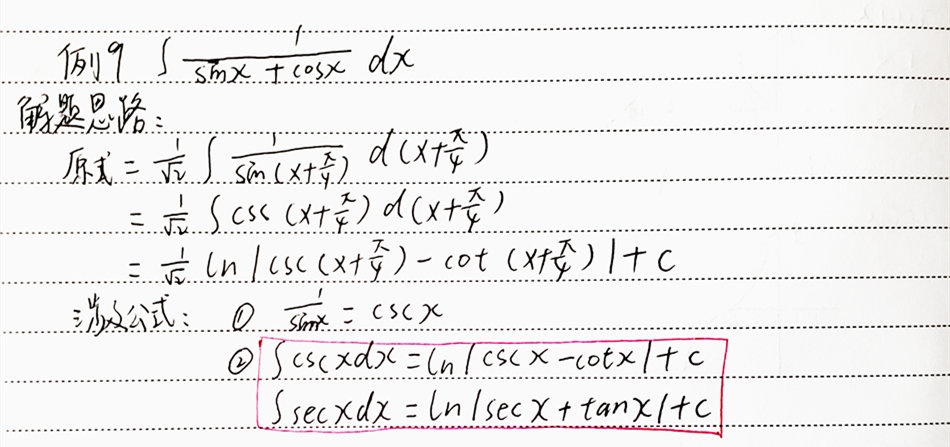 例9 ∫ 1/(sinx + cosx) dx
解题思路:
原式 = 1/√2 ∫ 1/sin(x+π/4) d(x+π/4)
= 1/√2 ∫ csc (x+π/4) d(x+π/4)
= 1/√2 ln |csc(x+π/4) - cot (x+π/4)| + c
涉及公式: ① 1/sinx = cscx
② ∫cscxdx = ln|cscx - cotx| + c
∫secxdx = ln|secx + tanx| + c